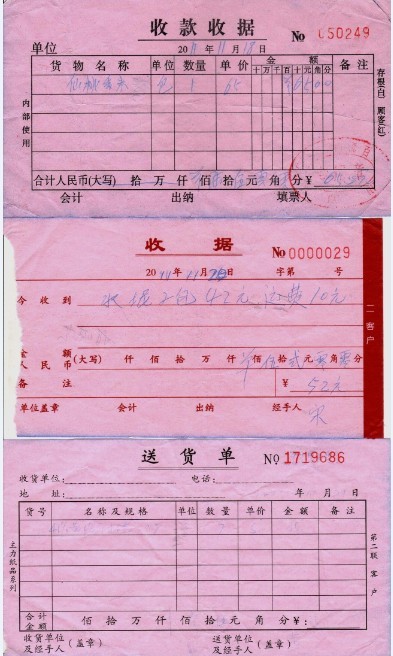 收款收据 No 050249
单位 2011年11月18日
货物名称 单位 数量 单价 金额 备注
十 万 千 百 十 元 角 分
1 65 6500
内部使用
存根(白) 顾客(红)
合计人民币(大写) 拾 万 仟 佰 拾 元 角 分¥
会计 出纳 填票人
收据 No 0000029
2011年11月28日 字第 号
今收到 收据2本 42元 运费10元
二 客户
金额
人民币(大写) 仟 佰 拾 万 仟 佰 伍拾 贰元 零角 零分
备注 ¥ 52元
单位盖章 会计 出纳 经手人
送货单 No 1719686
收货单位: 电话:
地址: 年 月 日
货号 名称及规格 单位 数量 单价 金额 备注
主力纸品系列
第二联 客户
合计金额 佰 拾 万 仟 佰 拾 元 角 分 ¥:
收货单位及经手人(盖章) 送货单位及经手人(盖章)